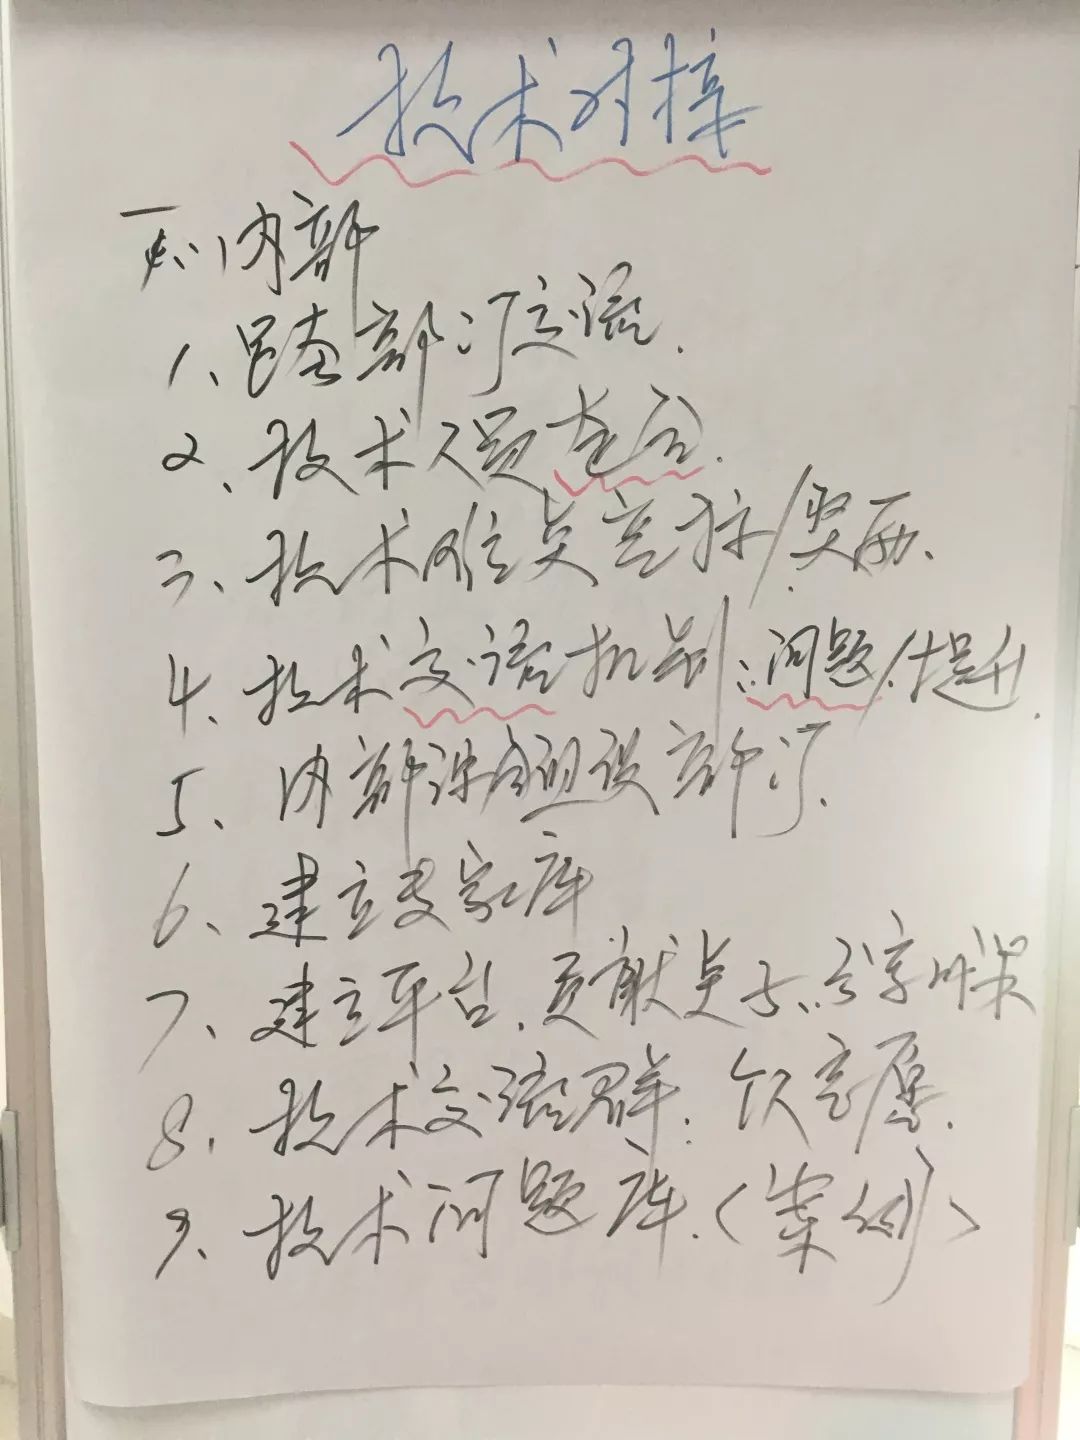 技术对接
一、内部
1、跨部门交流.
2、技术人员
3、技术难点竞标/奖励.
4、技术交流机制:问题/提升.
5、内部课题设部门.
6、建立专家库
7、建立平台.贡献
8、技术交流群:
9、技术问题库.(案例)